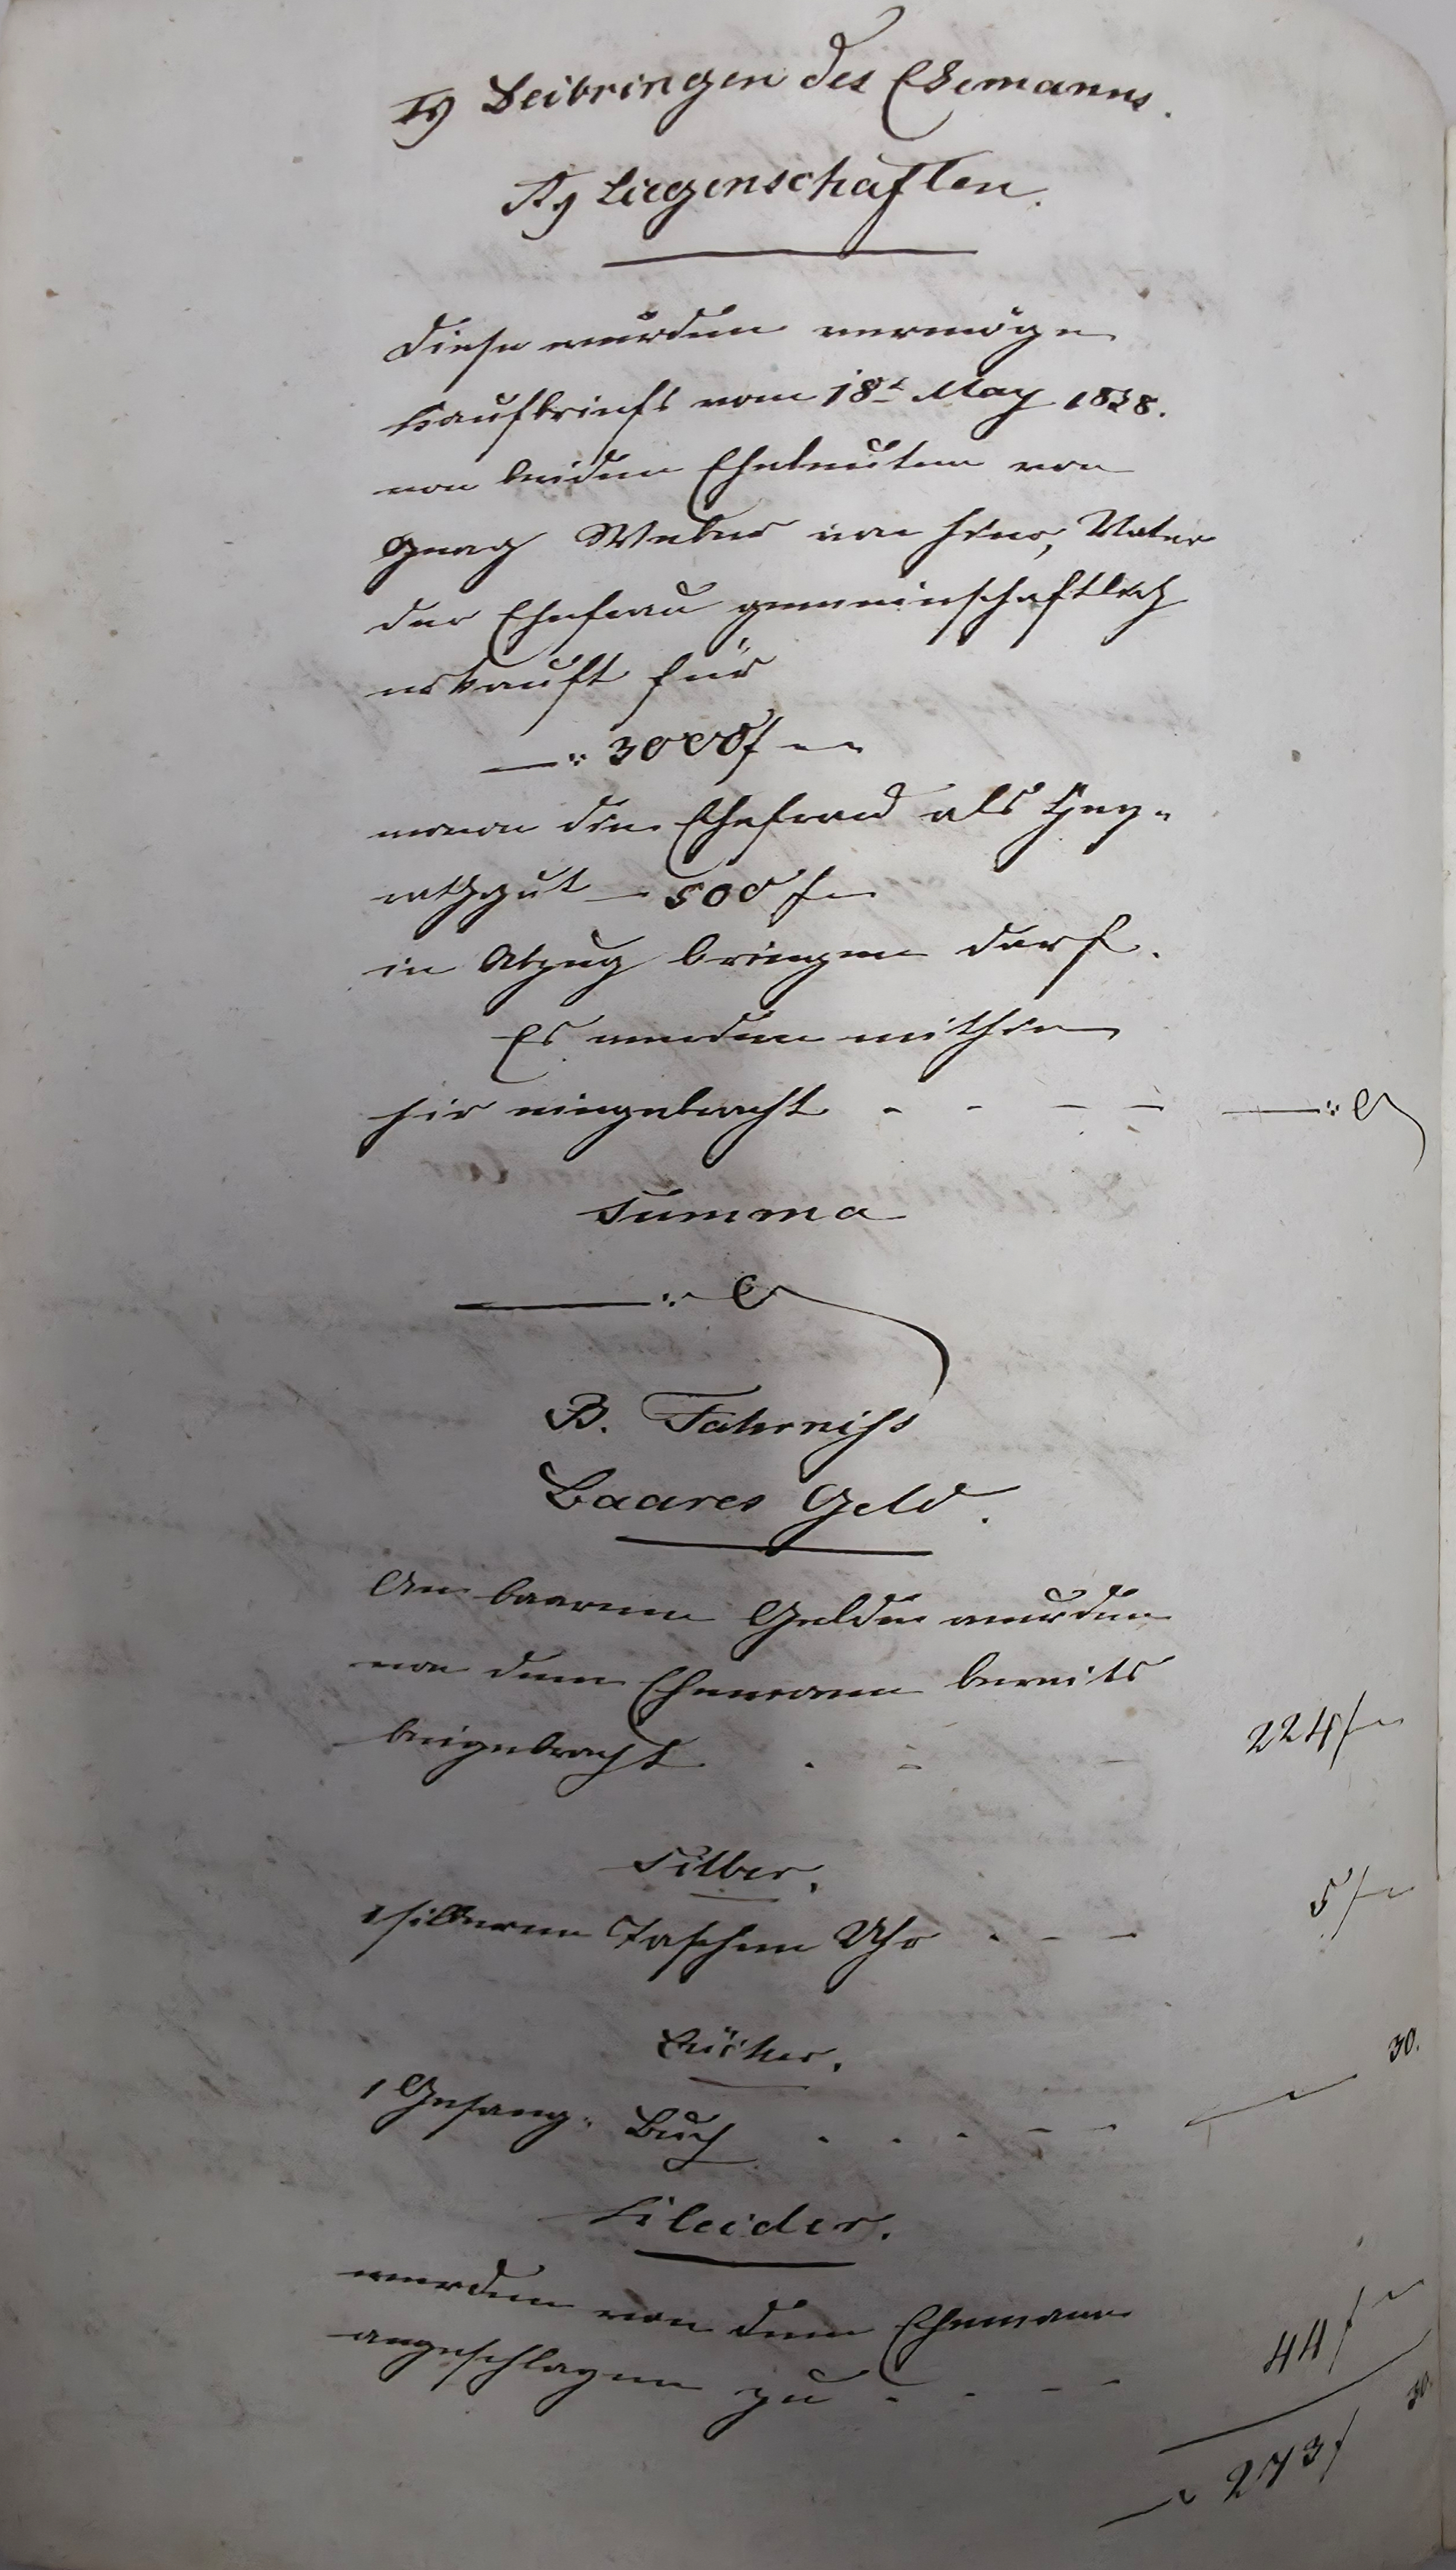 I) Beibringen des Ehemanns.
A, Liegenschaften.
Diese wurden vermöge
Kaufbriefs vom 18t May 1838.
von beiden Eheleuten von
Georg Weber von hier, Vater
der Ehefrau gemeinschaftlich
erkauft für
—:" 3000 f – –
wovon die Ehefrau als Hey-
rathgut – 500 f –
in Abzug bringen darf.
Es werden mithin
hir eingebracht - - - - —:"
Summa
B. Fahrniss
Baares Geld.
An baarem Gelde wurden
von dem Ehemann bereits
beigebracht . - - 224 f –
Silber.
1 silberne Taschen Uhr - - - 5 f –
Bücher.
1 Gesang- Buch . . . - - — 30.
Kleider.
werden von dem Ehemann
angeschlagen zu - - - - 44 f –
273 f 30.